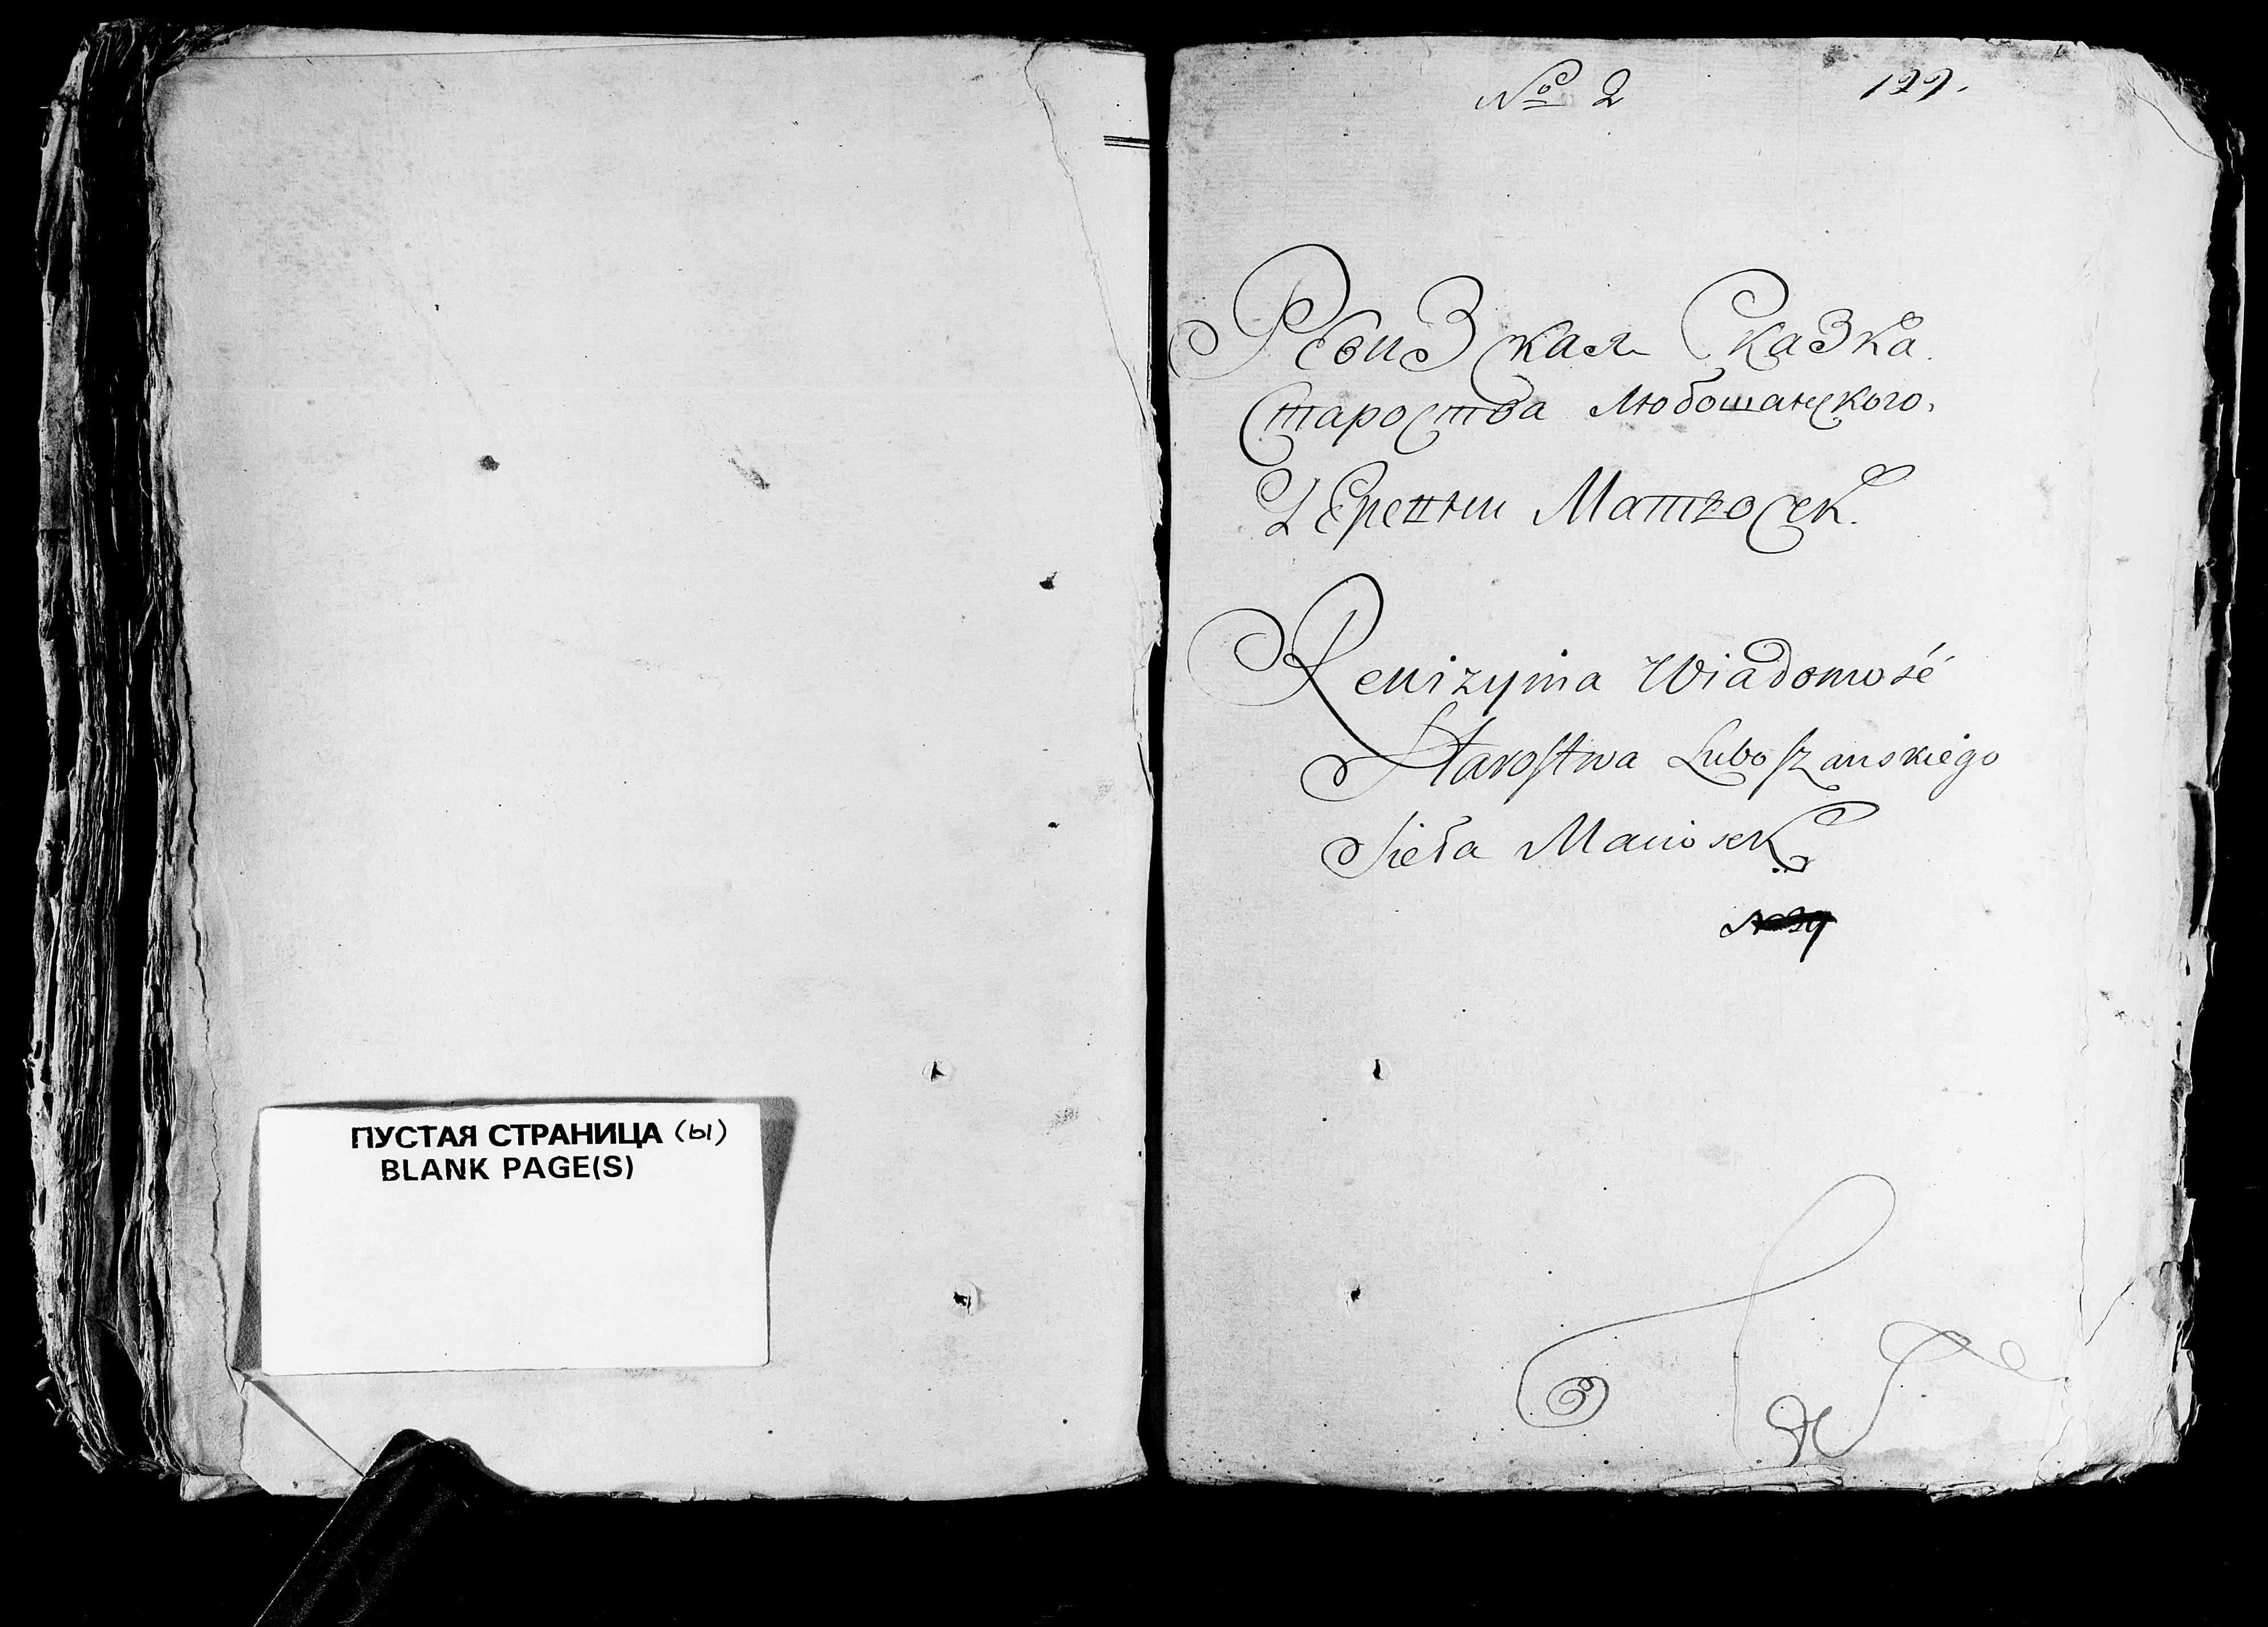 ПУСТАЯ СТРАНИЦА (ы)
BLANK PAGE(S)
№ 2
199.
РевиЗская СкаЗка
Староства Любошанского.
Деревни Матѣосек.
Rewizyina Wiadomość
Starostwa Luboszanskiego
Sieła Maciosek